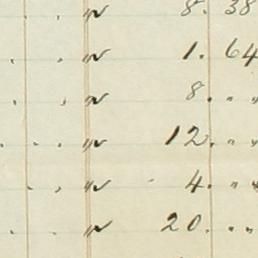 " 8. 38
" 1. 64
" 8. " "
" 12. " "
" 4. " "
" 20. " "